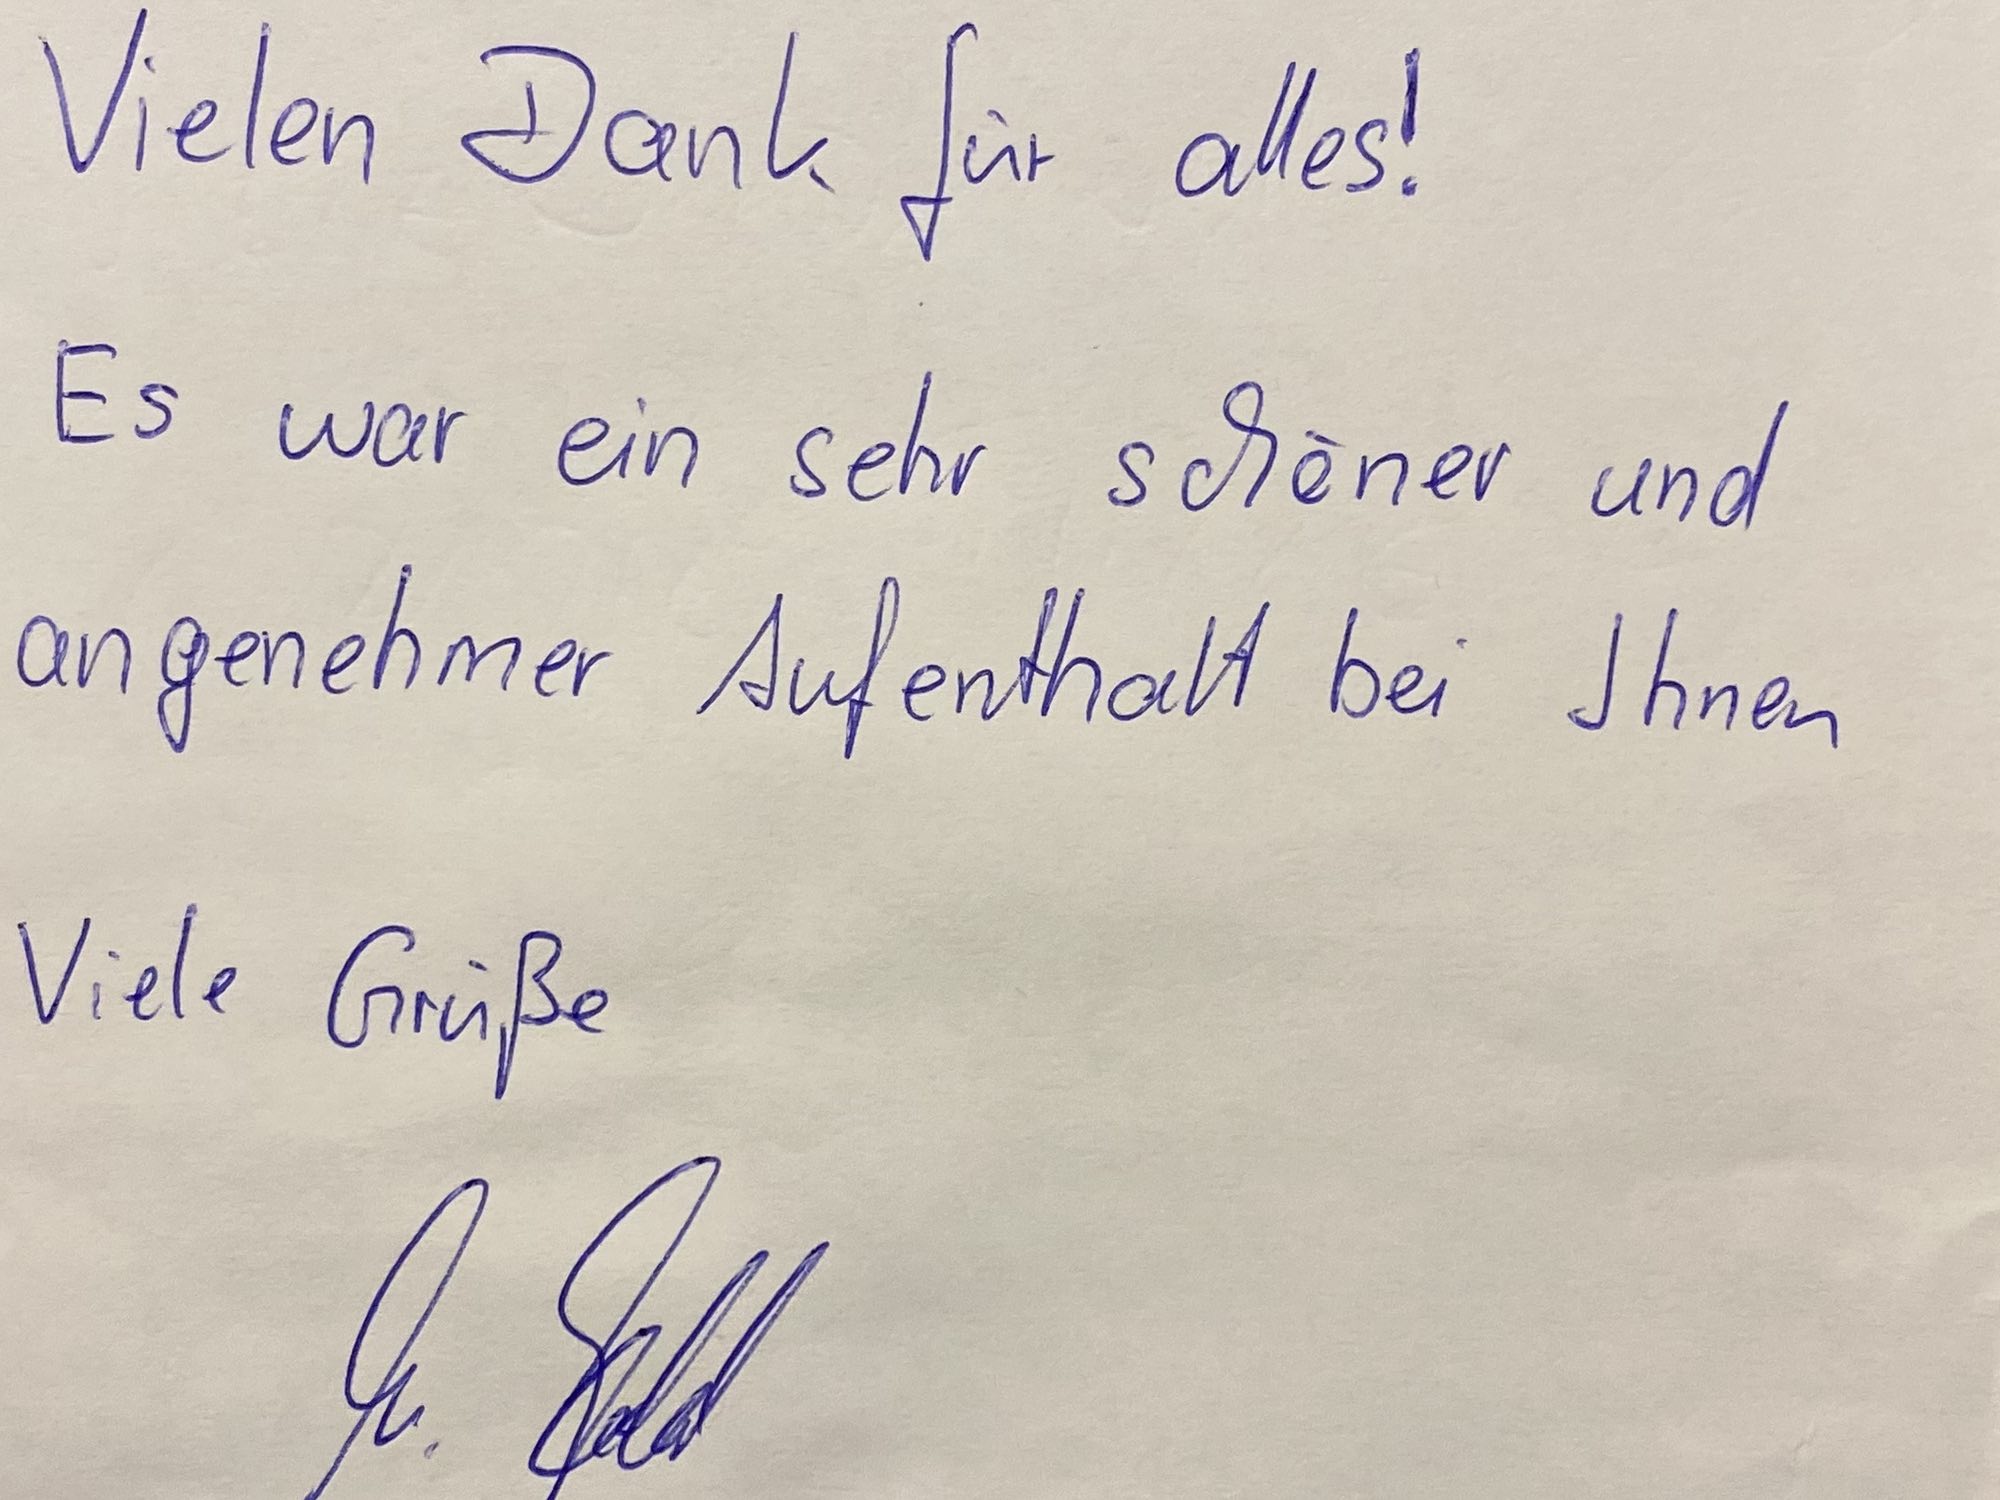 Vielen Dank für alles!
Es war ein sehr schöner und
angenehmer Aufenthalt bei Ihnen
Viele Grüße